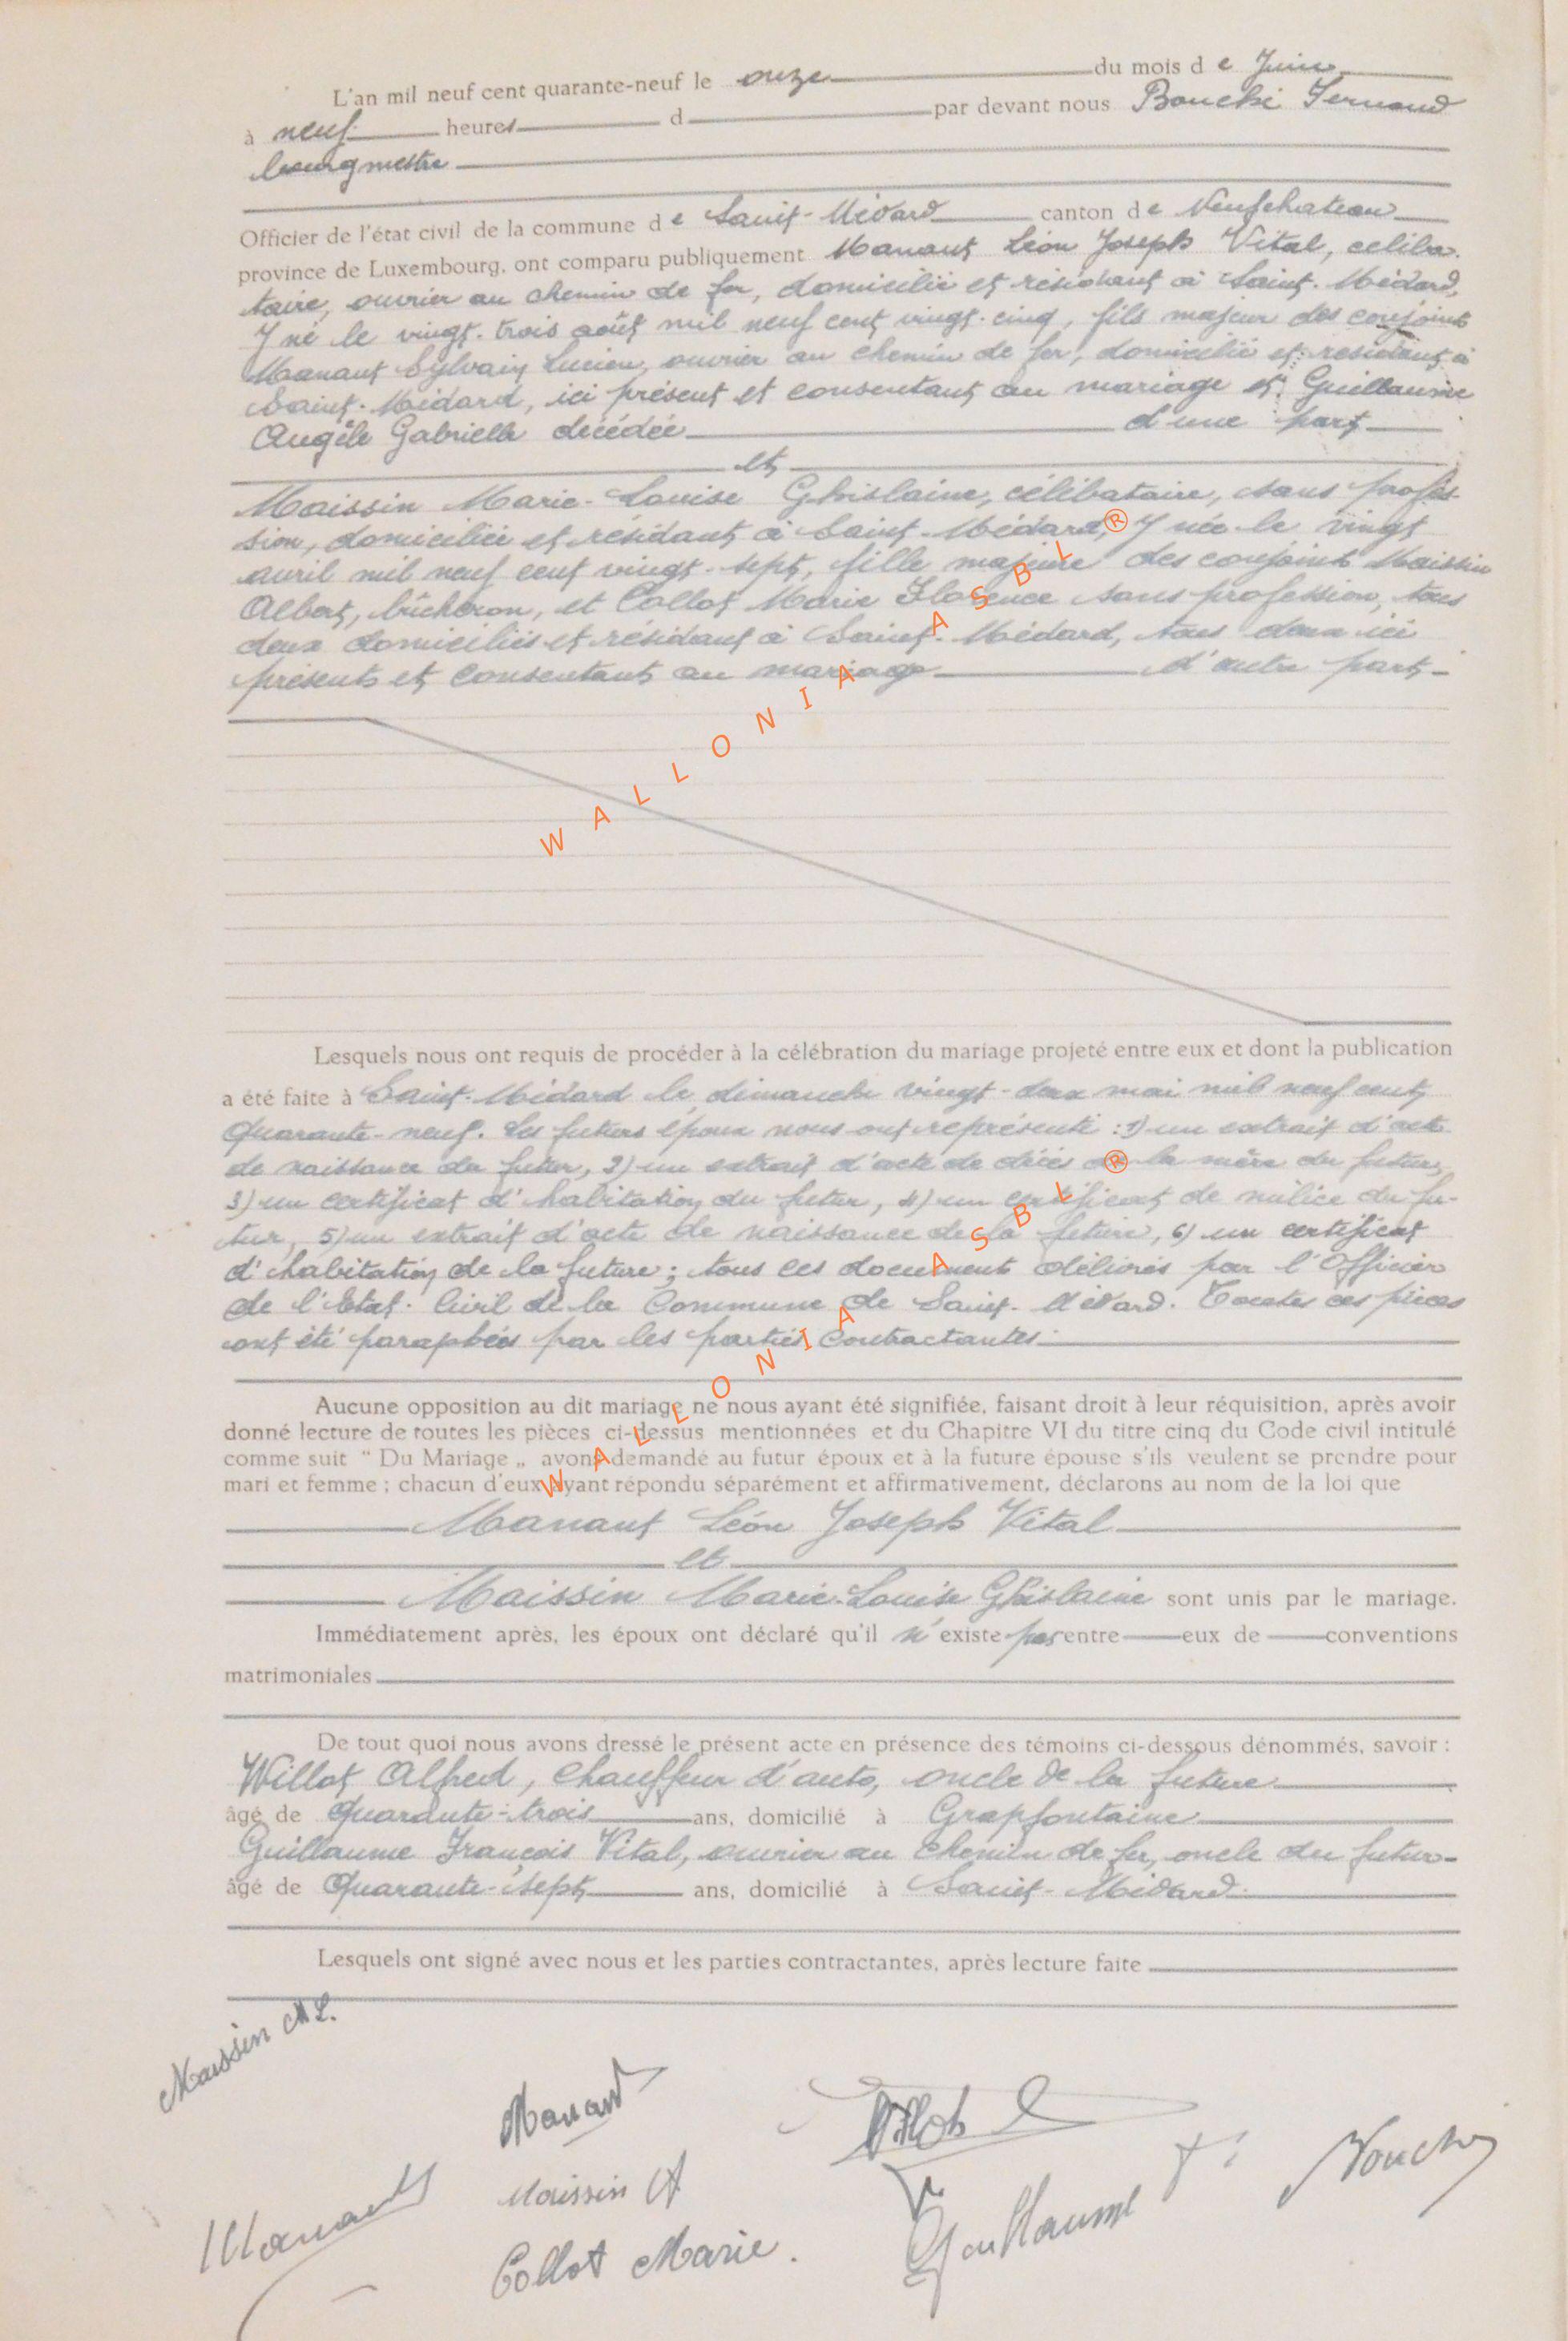 L'an mil neuf cent quarante-neuf le onze du mois d e Juin
à neuf heures d par devant nous Bouché Fernand
bourgmestre
Officier de l'état civil de la commune d e Saint-Médard canton d e Neufchateau
province de Luxembourg, ont comparu publiquement Manant Léon Joseph Vital, céliba-
taire, ouvrier au chemin de fer, domicilié et résidant à Saint-Médard,
y né le vingt-trois août mil neuf cent vingt-cinq, fils majeur des conjoints
Manant Sylvain Lucien, ouvrier au chemin de fer, domicilié et résidant à
Saint-Médard, ici présent et consentant au mariage et Guillaume
Angèle Gabrielle décédée d'une part
et
Maissin Marie-Louise Ghislaine, célibataire, sans profes-
sion, domiciliée et résidant à Saint-Médard, y née le vingt
avril mil neuf cent vingt-sept, fille majeure des conjoints Maissin
Albert, bûcheron, et Collot Marie Florence sans profession, tous
deux domiciliés et résidant à Saint-Médard, tous deux ici
présents et consentant au mariage d'autre part
WALLONIA ASBL ®
Lesquels nous ont requis de procéder à la célébration du mariage projeté entre eux et dont la publication
a été faite à Saint-Médard le dimanche vingt-deux mai mil neuf cent
quarante-neuf. Les futurs époux nous ont représenté : 1) un extrait d'acte
de naissance du futur, 2) un extrait d'acte de décès de la mère du futur,
3) un certificat d'habitation du futur, 4) un certificat de milice du fu-
tur, 5) un extrait d'acte de naissance de la future, 6) un certificat
d'habitation de la future ; tous ces documents délivrés par l'Officier
de l'Etat-Civil de la Commune de Saint-Médard. Toutes ces pièces
ont été paraphées par les parties contractantes.
WALLONIA ASBL ®
Aucune opposition au dit mariage ne nous ayant été signifiée, faisant droit à leur réquisition, après avoir
donné lecture de toutes les pièces ci-dessus mentionnées et du Chapitre VI du titre cinq du Code civil intitulé
comme suit " Du Mariage „ avons demandé au futur époux et à la future épouse s'ils veulent se prendre pour
mari et femme ; chacun d'eux ayant répondu séparément et affirmativement, déclarons au nom de la loi que
Manant Léon Joseph Vital
et
Maissin Marie-Louise Ghislaine sont unis par le mariage.
Immédiatement après, les époux ont déclaré qu'il n'existe pas entre eux de conventions
matrimoniales
De tout quoi nous avons dressé le présent acte en présence des témoins ci-dessous dénommés, savoir :
Willot Alfred, chauffeur d'auto, oncle de la future
âgé de quarante-trois ans, domicilié à Grapfontaine
Guillaume François Vital, ouvrier au chemin de fer, oncle du futur
âgé de quarante-sept ans, domicilié à Saint-Médard.
Lesquels ont signé avec nous et les parties contractantes, après lecture faite
Maissin M L.
Manant
Willot
Bouché
Maissin A
Manant
Guillaume
Collot Marie.